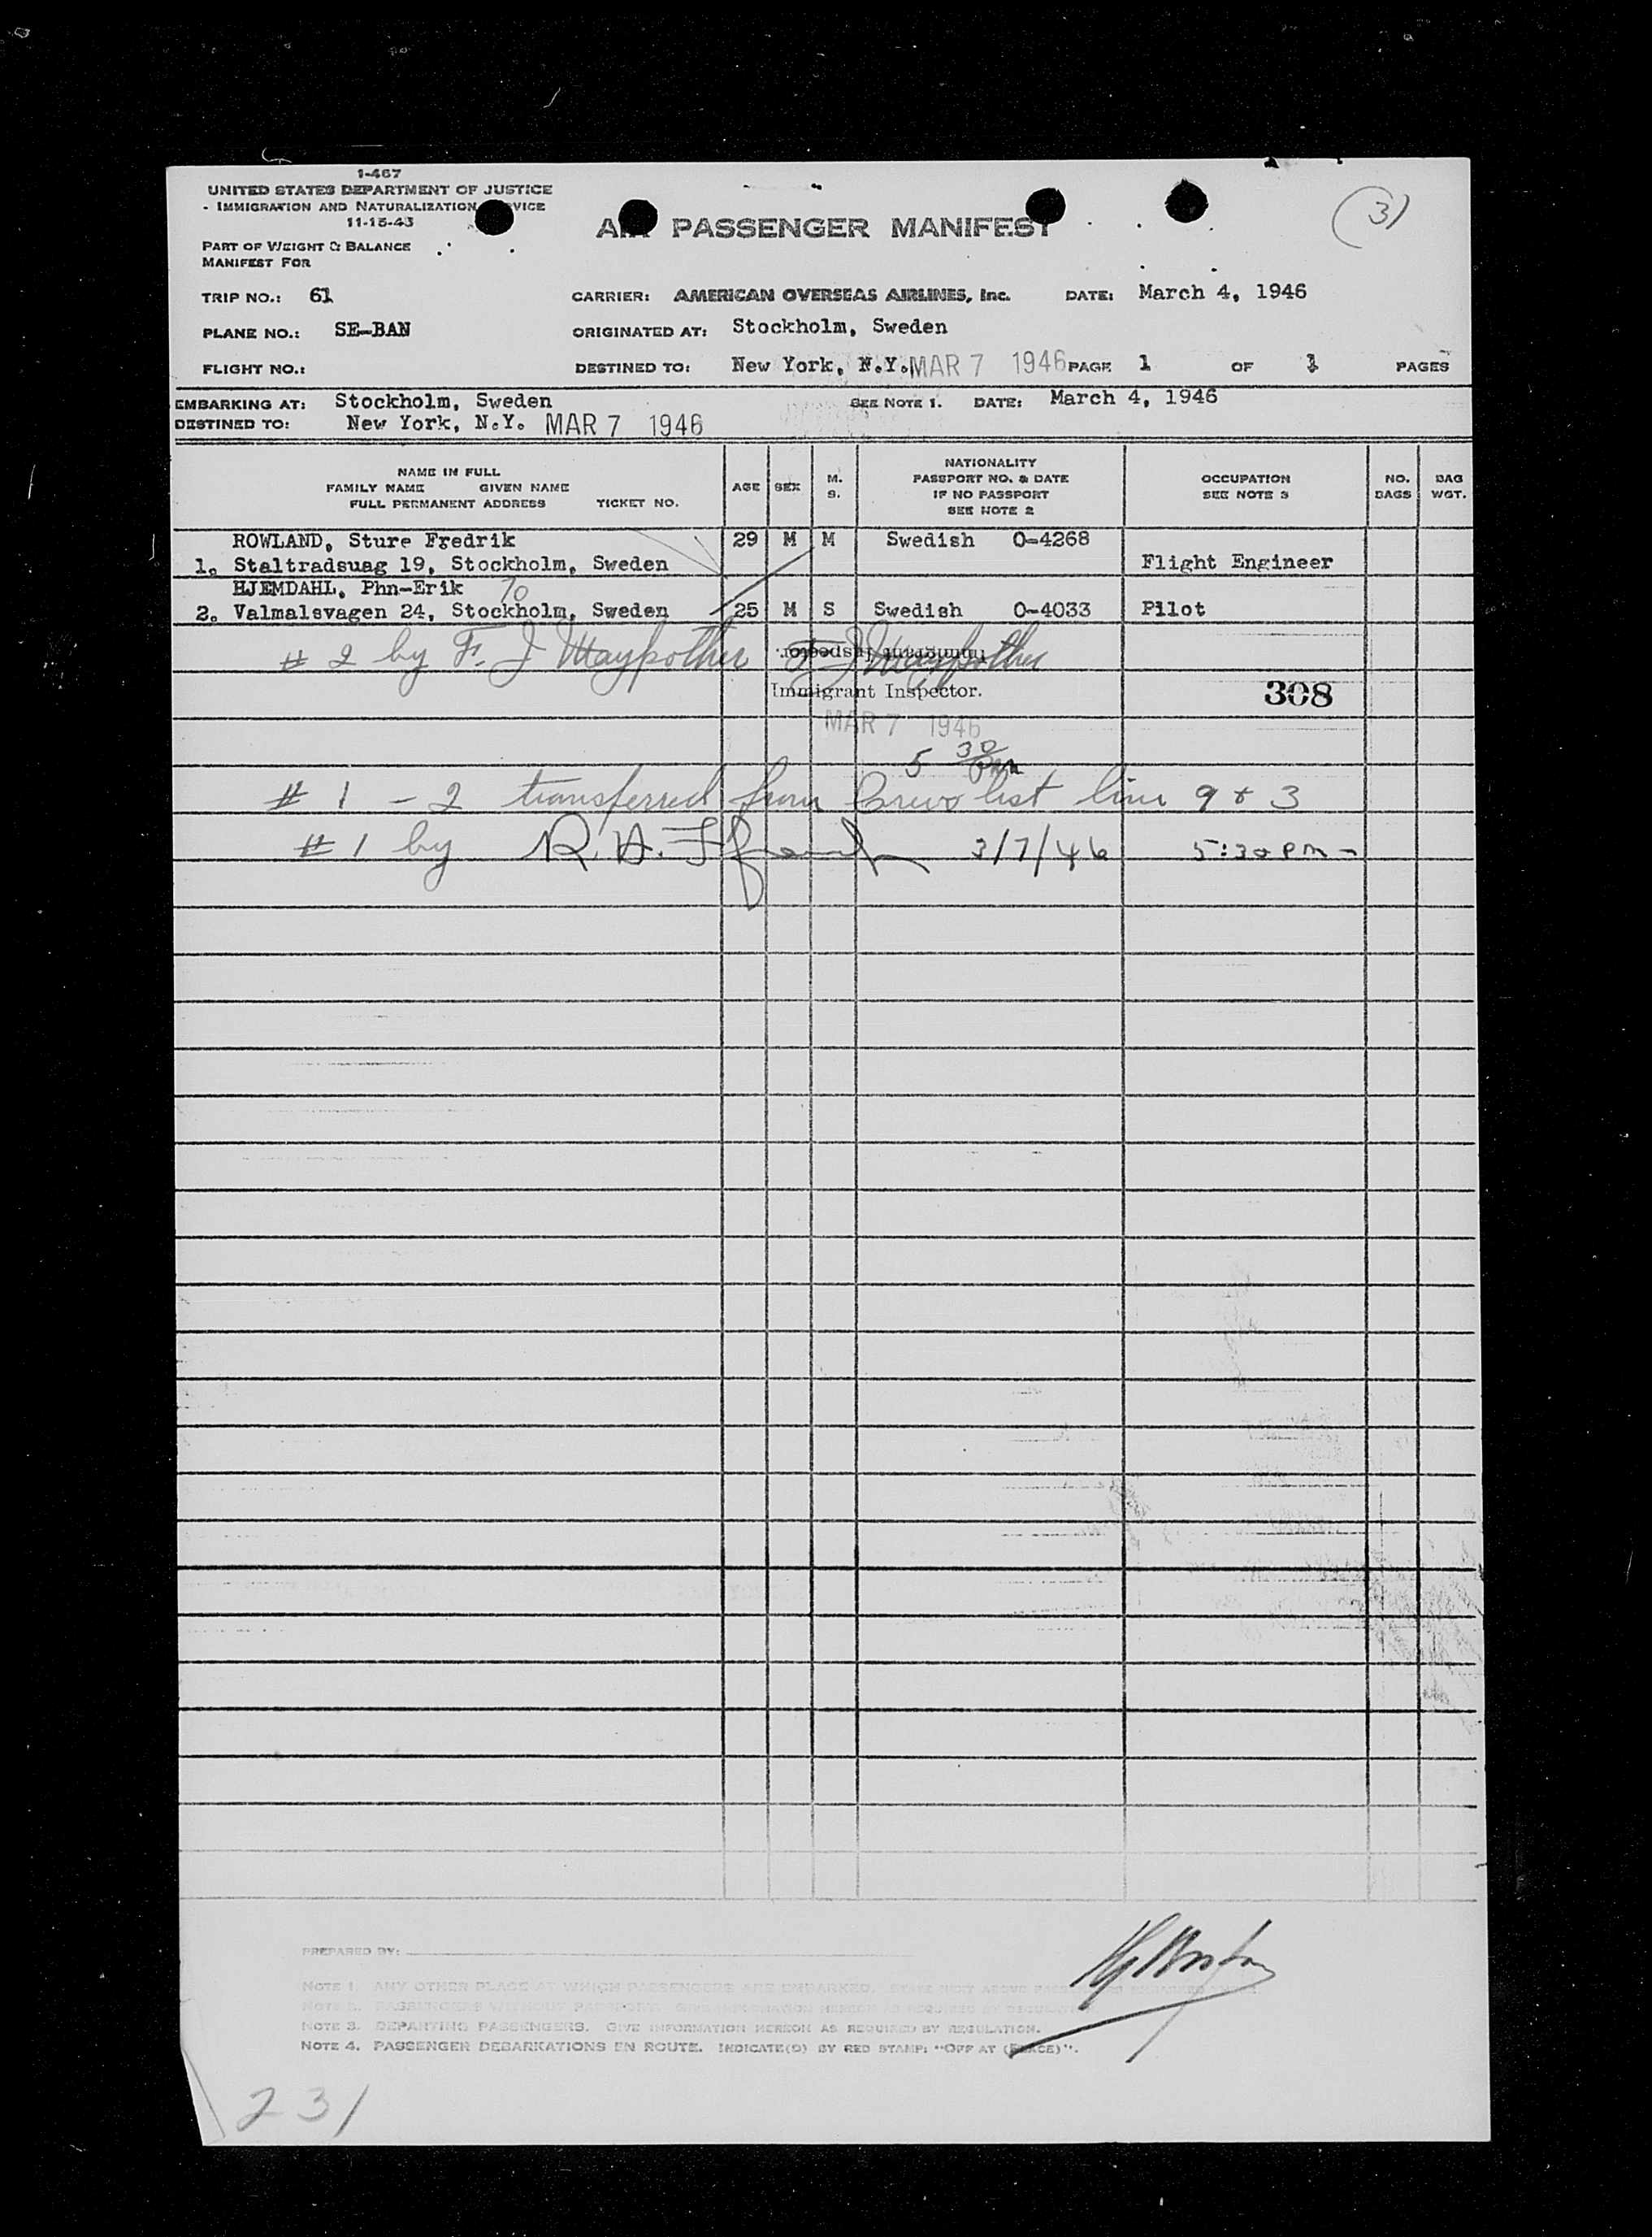 1-467
UNITED STATES DEPARTMENT OF JUSTICE
- IMMIGRATION AND NATURALIZATION VICE
11-15-43
(3)
A PASSENGER MANIFEST
PART OF WEIGHT & BALANCE
MANIFEST FOR
TRIP NO.: 61 CARRIER: AMERICAN OVERSEAS AIRLINES, Inc. DATE: March 4, 1946
PLANE NO.: SE-BAN ORIGINATED AT: Stockholm, Sweden
FLIGHT NO.: DESTINED TO: New York, N.Y. MAR 7 1946 PAGE 1 OF 1 PAGES
EMBARKING AT: Stockholm, Sweden SEE NOTE 1. DATE: March 4, 1946
DESTINED TO: New York, N.Y. MAR 7 1946
NAME IN FULL
FAMILY NAME GIVEN NAME
FULL PERMANENT ADDRESS TICKET NO.
AGE SEX M. S.
NATIONALITY
PASSPORT NO. & DATE
IF NO PASSPORT
SEE NOTE 2
OCCUPATION
SEE NOTE 3
NO. BAGS
BAG WGT.
ROWLAND, Sture Fredrik 29 M M Swedish O-4268
1. Staltradsuag 19, Stockholm, Sweden Flight Engineer
HJEMDAHL, Phn-Erik 70
2. Valmalsvagen 24, Stockholm, Sweden 25 M S Swedish O-4033 Pilot
# 2 by F. J Maypother F J Maypother
Immigrant Inspector.
Immigrant Inspector. 308
MAR 7 1946
5 30 pm
# 1 - 2 transferred from Crew list line 9 + 3
# 1 by R. H. 3/7/46 5:30 PM -
PREPARED BY:
NOTE 1. ANY OTHER PLACE AT WHICH PASSENGERS ARE EMBARKED.
NOTE 2. PASSENGERS WITHOUT PASSPORT. GIVE INFORMATION HEREON AS REQUIRED BY
NOTE 3. DEPARTING PASSENGERS. GIVE INFORMATION HEREON AS REQUIRED BY REGULATION.
NOTE 4. PASSENGER DEBARKATIONS EN ROUTE. INDICATE(D) BY RED STAMP: "OFF AT (PLACE)".
231